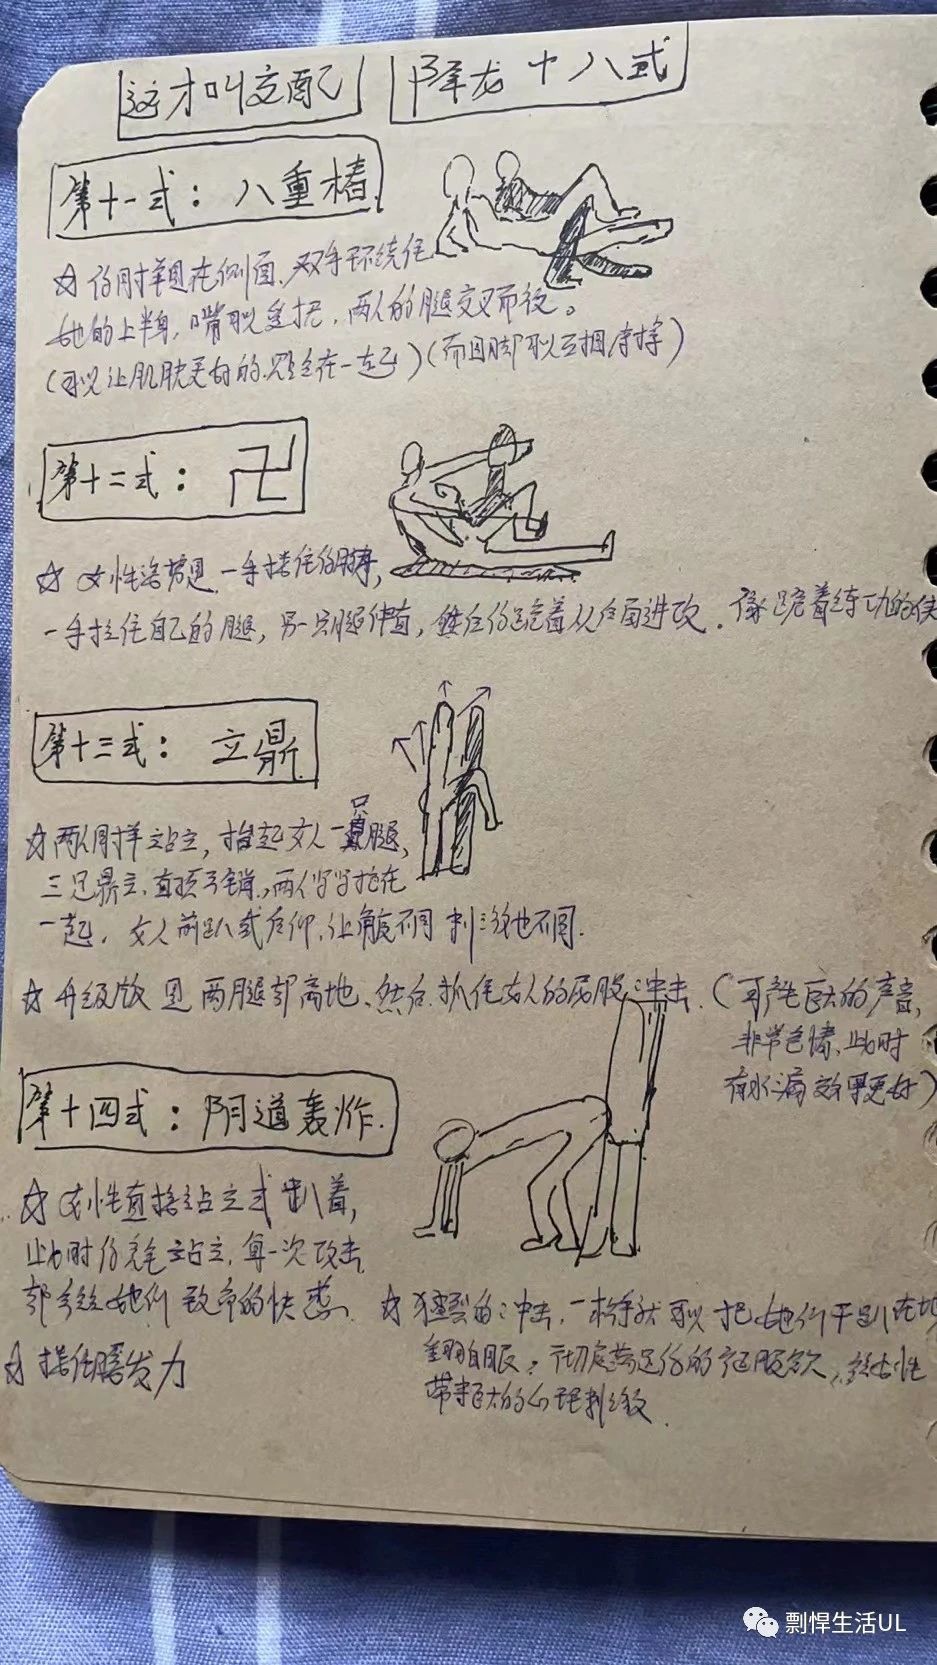 这才叫交配 降龙十八式
第十一式：八重椿
☆ 同样是在侧面，双手环绕住
她的上半身，嘴可以 ，两人的腿交叉而后。
（可以让肌肤更多的 在一起）（而且脚可以互相 ）
第十二式：卍
☆ 女性 一手搭住你的脖，
一手拉住自己的腿，另一只腿伸直，然后你跪着从后面进攻。像跪着练功的侠
第十三式：立鼎
☆ 两人同样站立，抬起女人一只腿，
三足鼎立，直顶 ，两人紧紧抱在
一起，女人前趴或后仰，让角度不同 刺激也不同。
☆ 升级版 是 两腿都离地、然后 抓住女人的屁股冲击（可产生巨大的声音，
非常色情，此时
有水滴效果更好）
第十四式：阴道轰炸
☆ 女性直接站立式趴着，
此时你完全站立，每一次攻击
都 她们致命的快感
☆ 猛烈的冲击，一 可以把她们干趴在地
翻白眼， 满足你的征服欲，给女性
带来巨大的心理刺激
☆ 搭住腰发力
剽悍生活UL